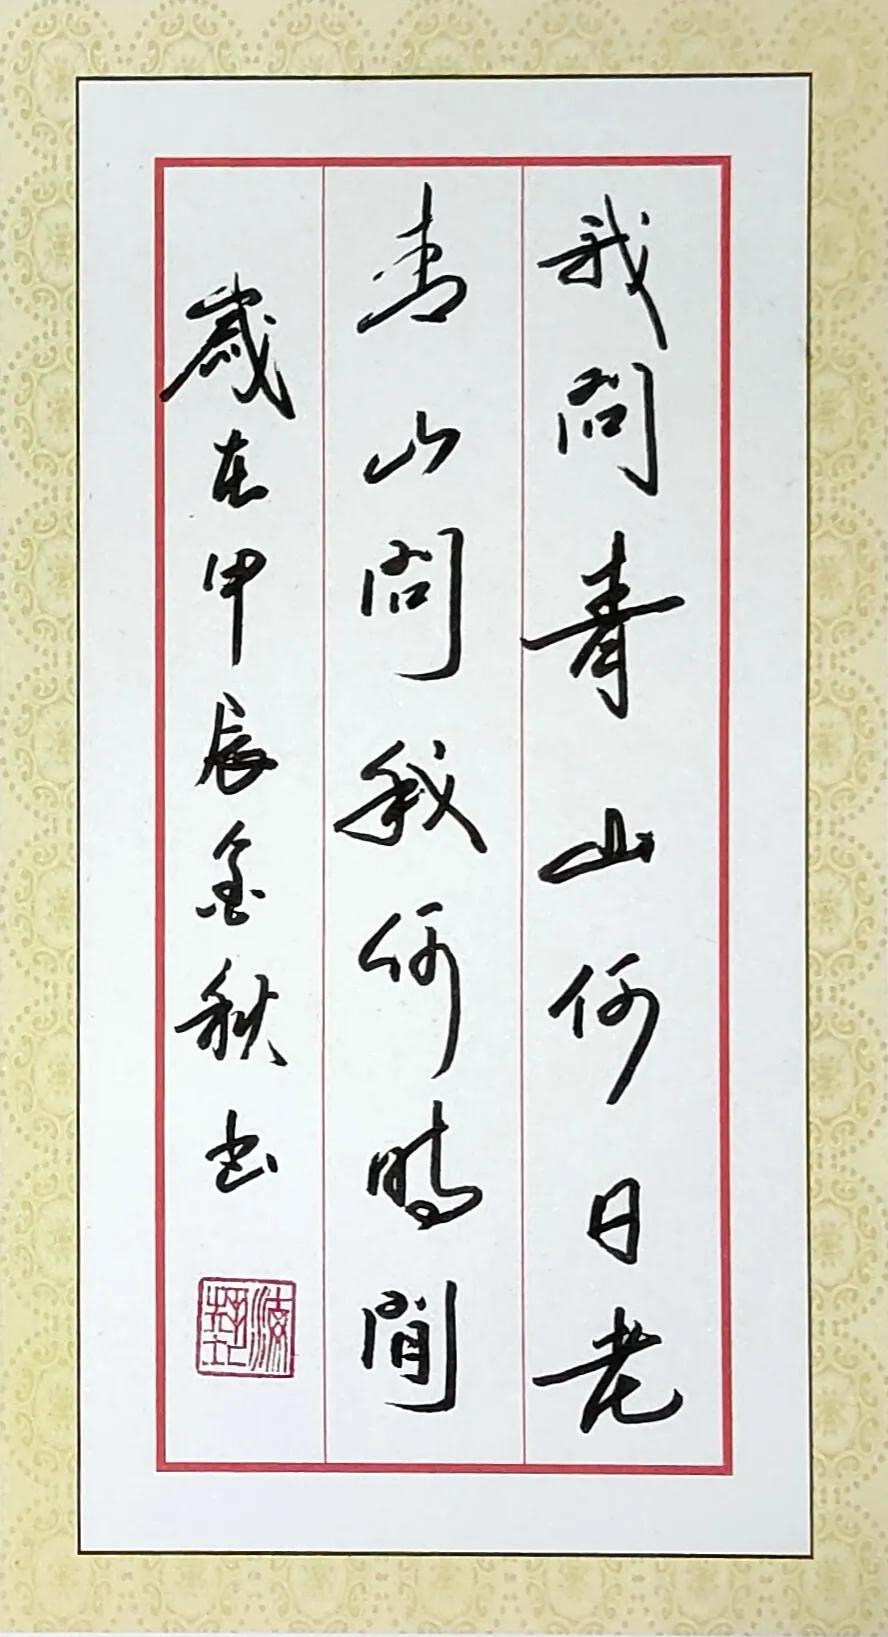 我問青山何日老
青山問我何時閒
歲在甲辰金秋书